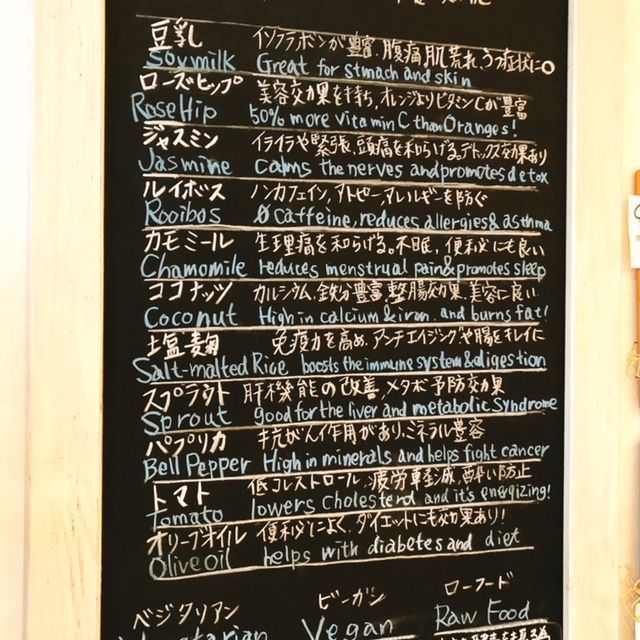 豆乳 イソフラボンが豊富、腹痛、肌荒れ、うつ症状に◎
Soymilk Great for stmach and skin
ローズヒップ 美容効果を持ち、オレンジよりビタミンCが豊富
RoseHip 50% more vitamin C than Oranges!
ジャスミン イライラや緊張、頭痛を和らげる。デトックス効果あり
Jasmine calms the nerves and promotes detox
ルイボス ノンカフェイン、アトピー、アレルギーを防ぐ
Rooibos 0 caffeine, reduces allergies & asthma
カモミール 生理痛を和らげる。不眠、便秘にも良い
Chamomile reduces menstrual pain & promotes sleep
ココナッツ カルシウム、鉄分豊富、整腸効果、美容に良い
Coconut High in calcium & iron. and burns fat!
塩麹 免疫力を高め、アンチエイジングや腸をキレイに
Salt-malted Rice boosts the immune system & digestion
スプラウト 肝機能の改善、メタボ予防効果
Sprout good for the liver and metabolic syndrome
パプリカ 抗がん作用があり、ミネラル豊富
Bell Pepper High in minerals and helps fight cancer
トマト 低コレストロール、疲労軽減、酔い防止
Tomato lowers cholesterol and it's energizing!
オリーブオイル 便秘によく、ダイエットにも効果あり!
Olive oil helps with diabetes and diet
ベジタリアン ビーガン ローフード
Vegan Raw Food